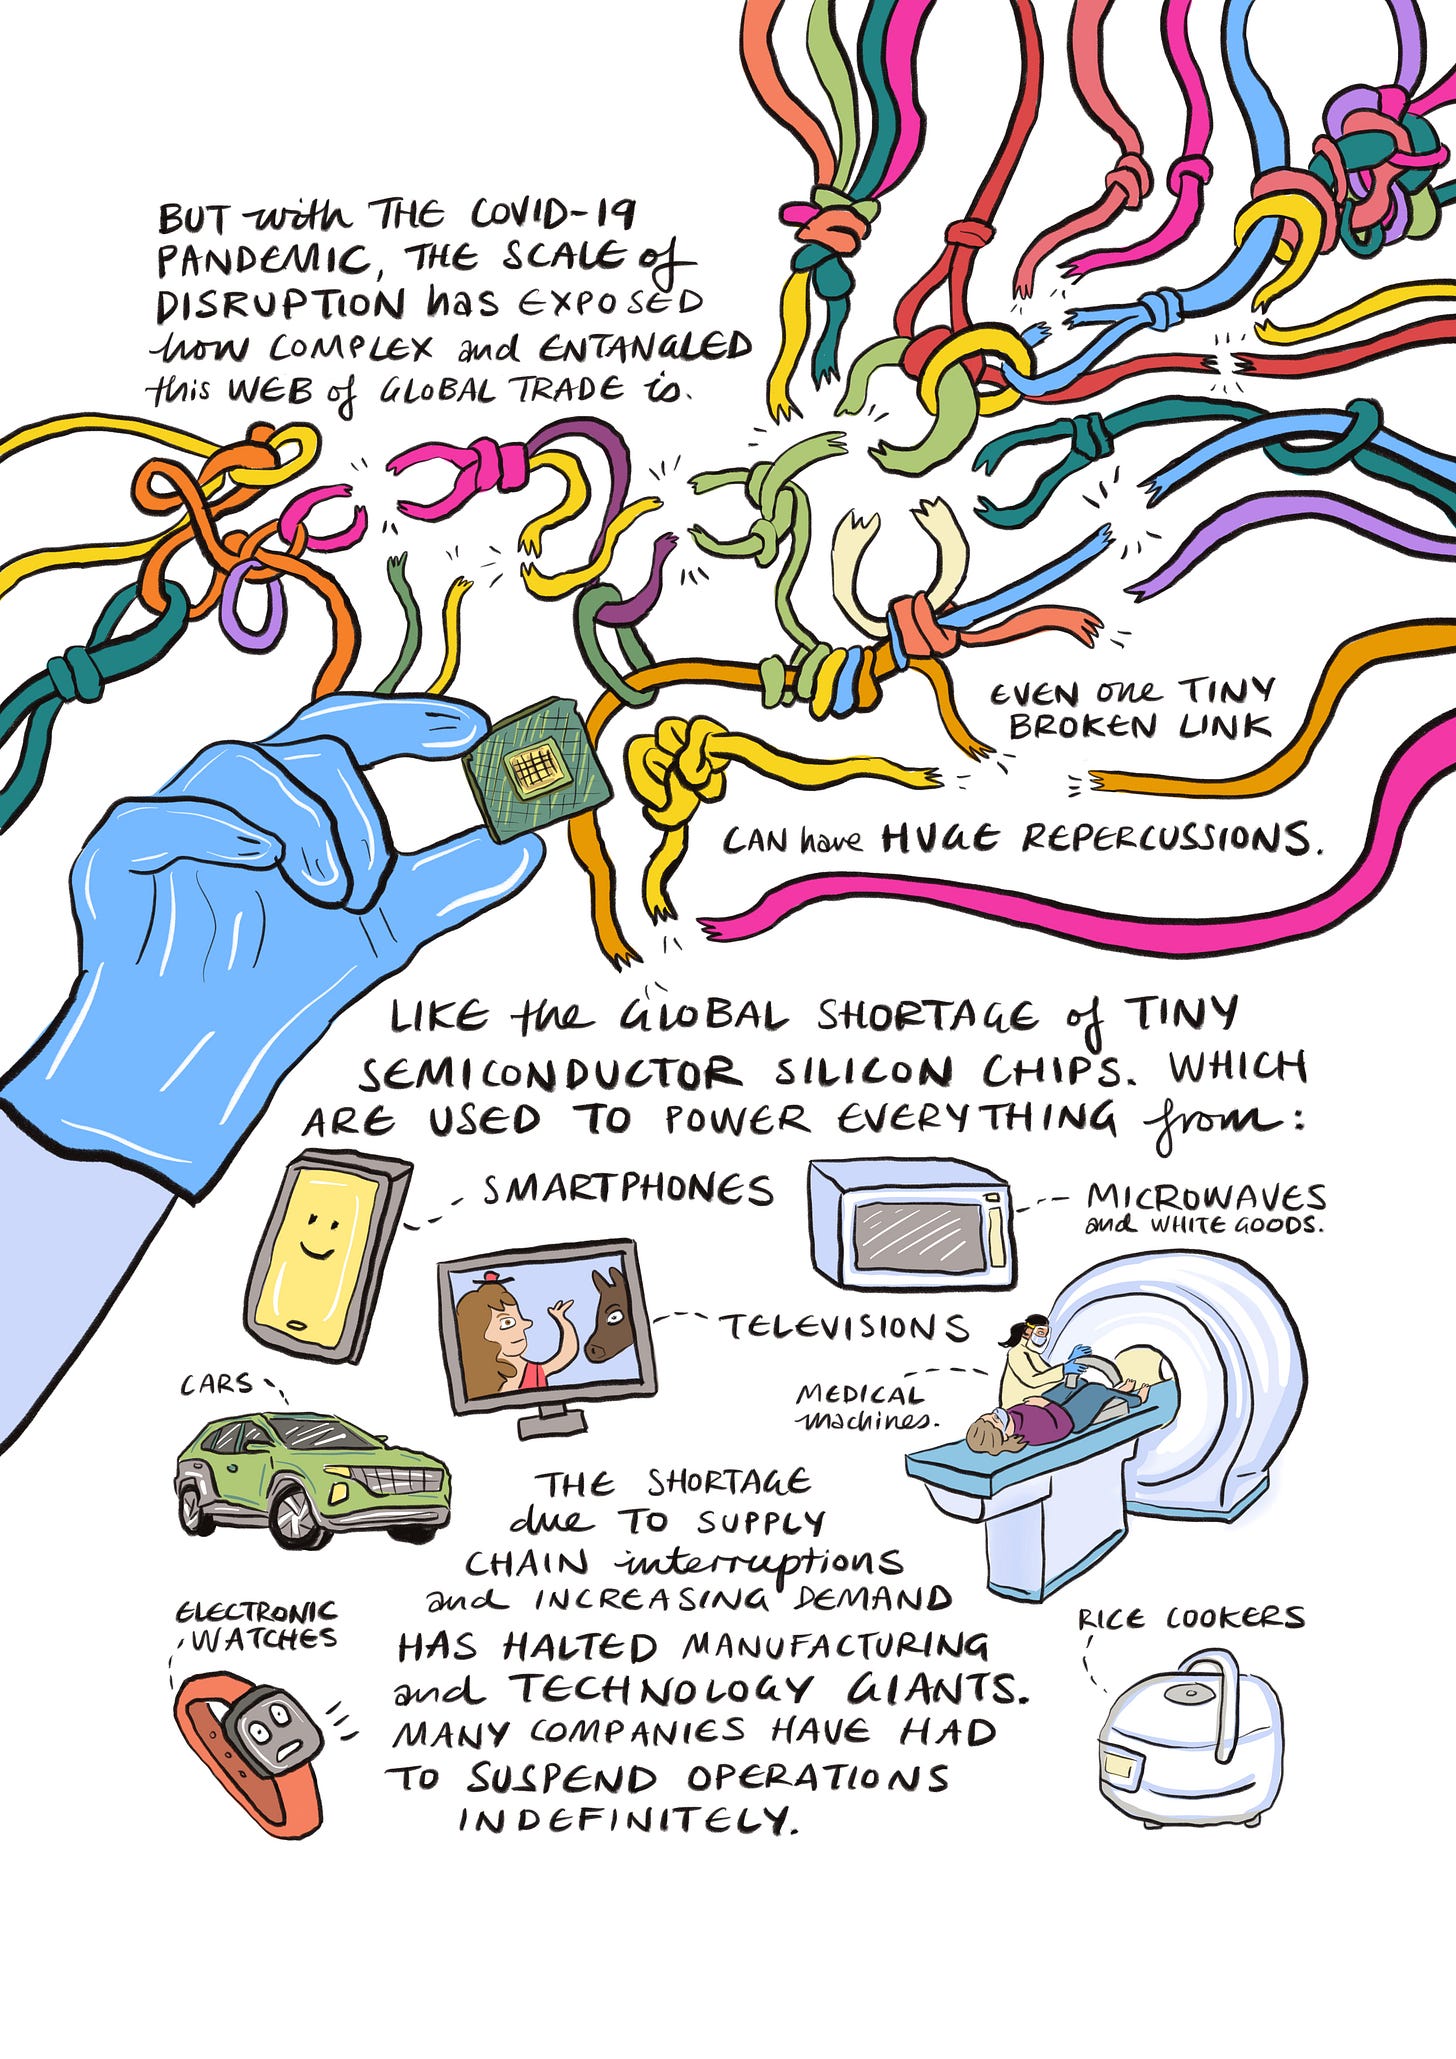 BUT with THE COVID-19
PANDEMIC, THE SCALE of
DISRUPTION has EXPOSED
how COMPLEX and ENTANGLED
this WEB of GLOBAL TRADE is.
EVEN one TINY
BROKEN LINK
CAN have HUGE REPERCUSSIONS.
LIKE the GLOBAL SHORTAGE of TINY
SEMICONDUCTOR SILICON CHIPS. WHICH
ARE USED TO POWER EVERYTHING from:
SMARTPHONES
MICROWAVES
and WHITE GOODS.
TELEVISIONS
CARS
MEDICAL
machines.
THE SHORTAGE
due TO SUPPLY
CHAIN interruptions
and INCREASING DEMAND
HAS HALTED MANUFACTURING
and TECHNOLOGY GIANTS.
MANY COMPANIES HAVE HAD
TO SUSPEND OPERATIONS
INDEFINITELY.
ELECTRONIC
WATCHES
RICE COOKERS